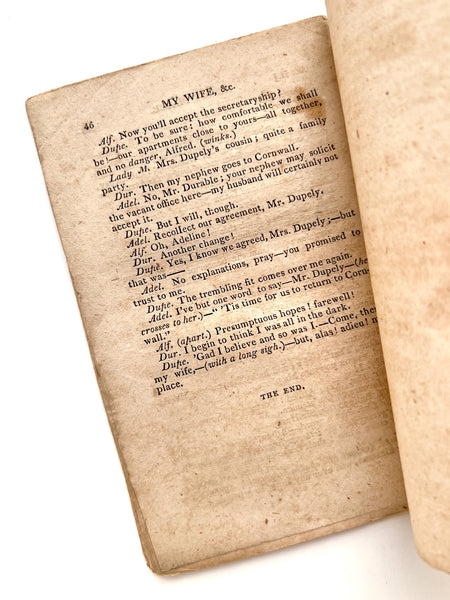 46
MY WIFE, &c.
Alf. Now you'll accept the secretaryship?
Dupe. To be sure: how comfortable we shall
be!—our apartments close to yours—all together,
and no danger, Alfred. (winks.)
Lady M. Mrs. Dupely's cousin; quite a family
party.
Dur. Then my nephew goes to Cornwall.
Adel. No, Mr. Durable; your nephew may solicit
the vacant office here—my husband will certainly not
accept it.
Dupe. But I will, though.
Adel. Recollect our agreement, Mr. Dupely.
Alf. Oh, Adeline!
Dur. Another change!
Dupe. Yes, I know we agreed, Mrs. Dupely;—but
that was——
Adel. No explanations, pray—you promised to
trust to me.
Dupe. The trembling fit comes over me again.
Adel. I've but one word to say—Mr. Dupely—(he
crosses to her.)—"'Tis time for us to return to Corn-
wall."
Alf. (apart.) Presumptuous hopes! farewell!
Dur. I begin to think I was all in the dark.
Dupe. 'Gad I believe and so was I.—Come, then
my wife,—(with a long sigh.)—but, alas! adieu!
place.
THE END.